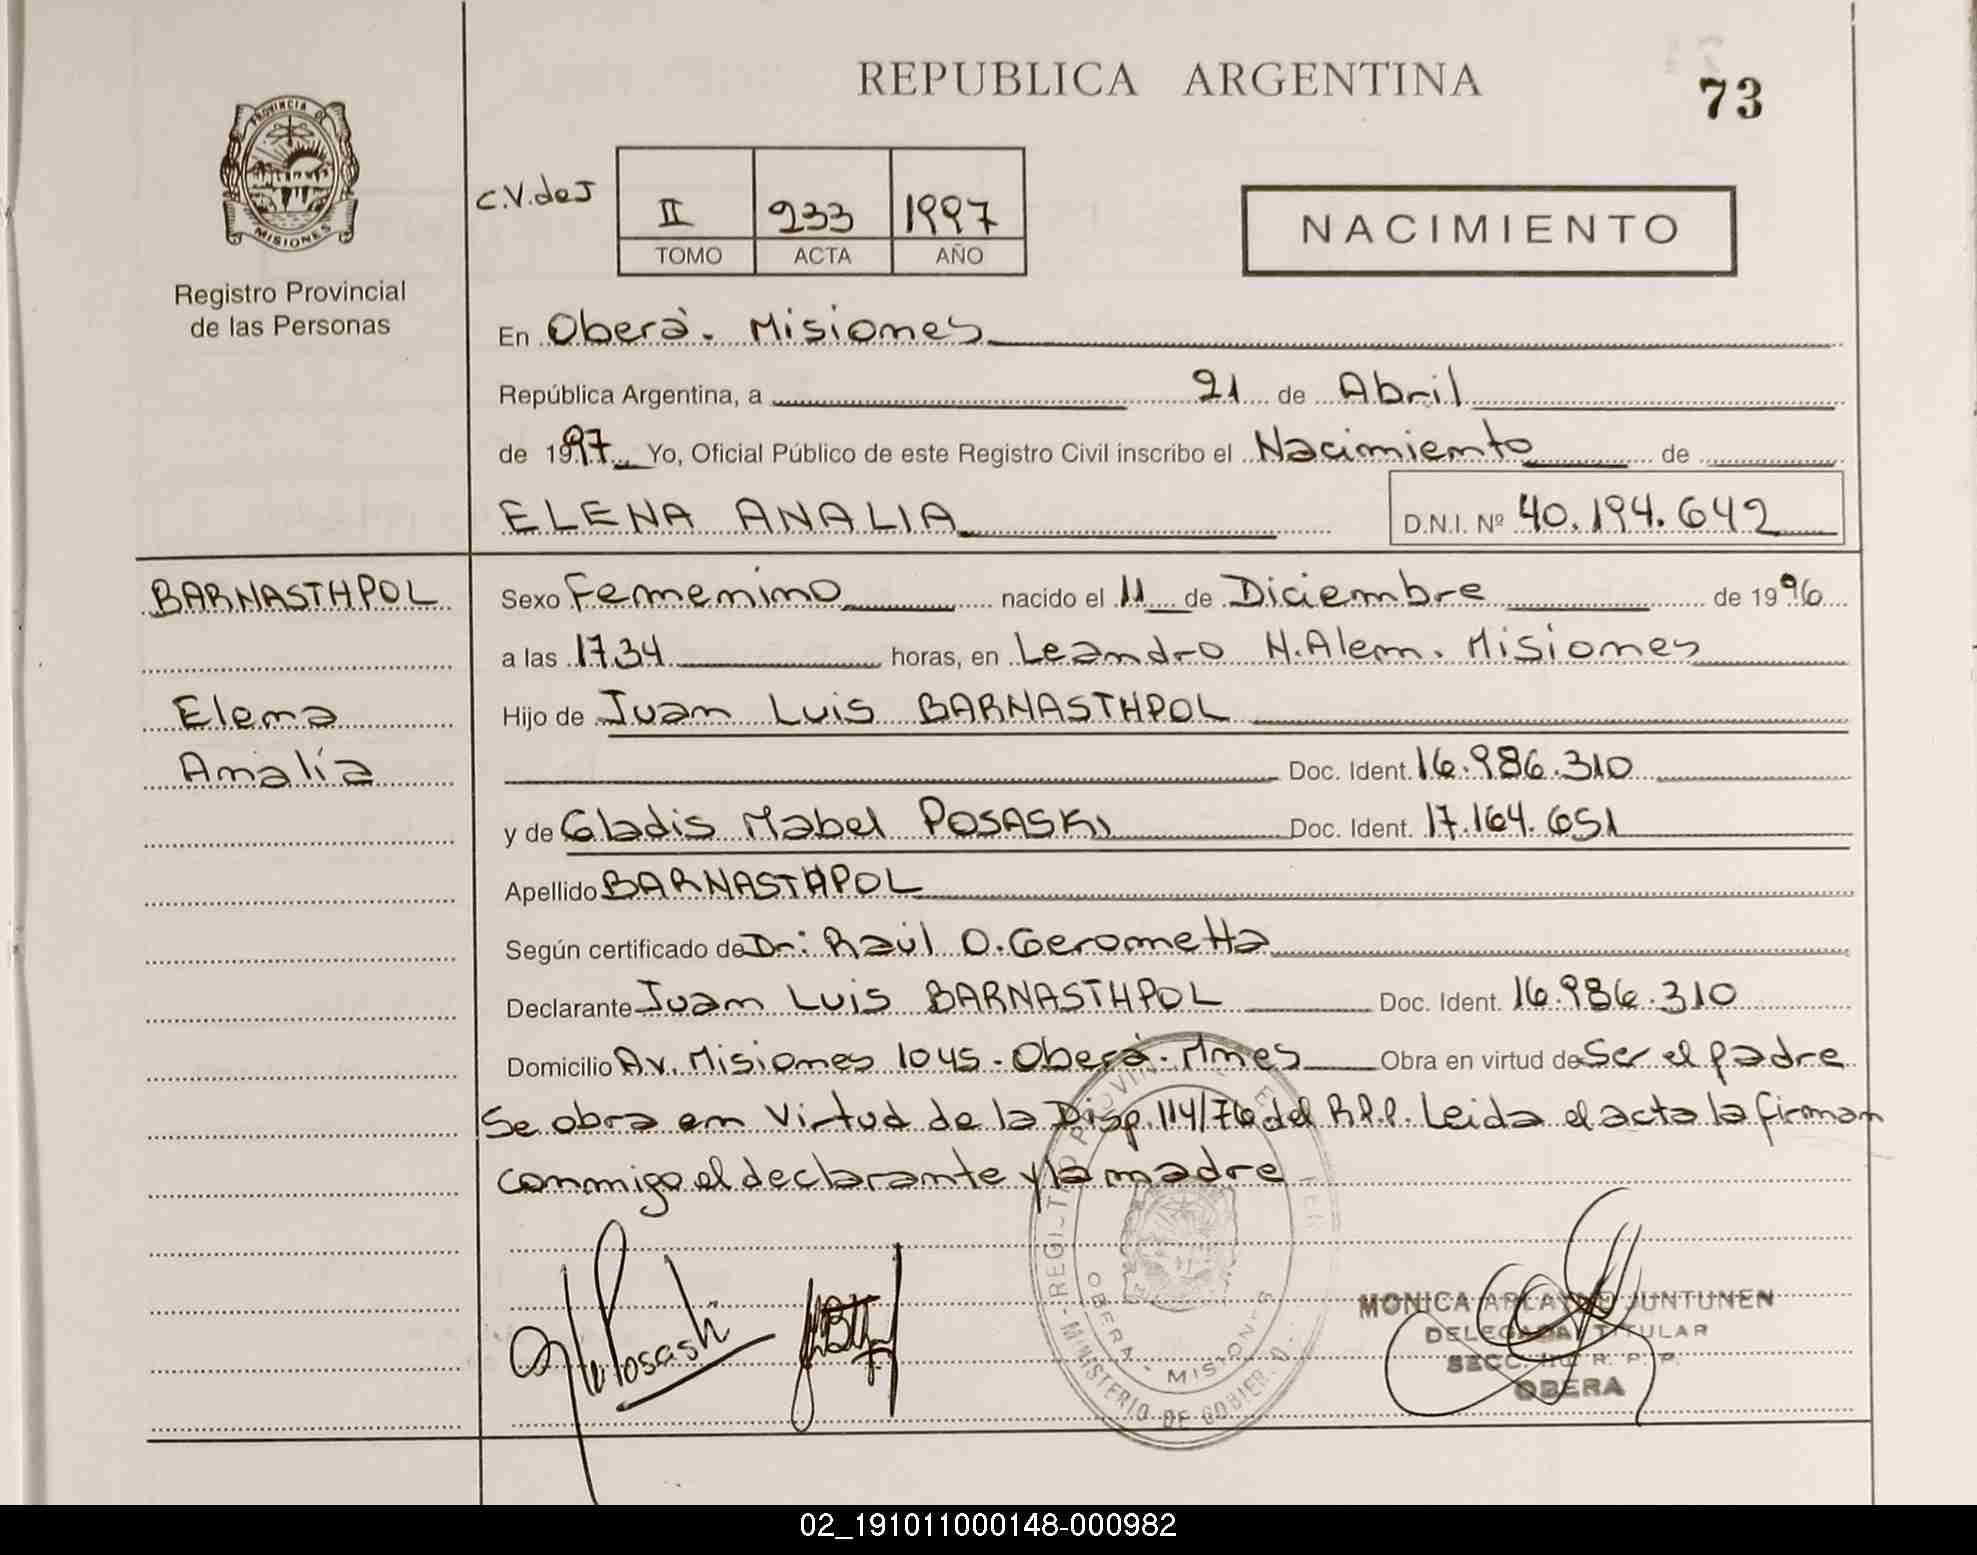 REPUBLICA ARGENTINA
73
PROVINCIA DE MISIONES
Registro Provincial
de las Personas
C.V. de J
II 233 1997
TOMO ACTA AÑO
NACIMIENTO
En Oberá. Misiones
República Argentina, a 21 de Abril
de 1997 Yo, Oficial Público de este Registro Civil inscribo el Nacimiento de
ELENA ANALIA D.N.I. Nº 40.194.642
BARNASTHPOL
Elena
Analía
Sexo Femenino nacido el 11 de Diciembre de 1996
a las 17.34 horas, en Leandro N. Alem. Misiones
Hijo de Juan Luis BARNASTHPOL
Doc. Ident. 16.986.310
y de Gladis Mabel POSASKI Doc. Ident. 17.164.651
Apellido BARNASTHPOL
Según certificado de Dr: Raúl O. Gerometta
Declarante Juan Luis BARNASTHPOL Doc. Ident. 16.986.310
Domicilio Av. Misiones 1045 - Oberá - Mnes Obra en virtud de Ser el padre
Se obra en virtud de la Disp. 114/76 del R.P.P. Leida el acta la firman
conmigo el declarante y la madre
OBERA - MISIONES
MINISTERIO DE GOBIERNO
MONICA JUNTUNEN
DELEGADA TITULAR
SECC. R. P. P.
OBERA
02_191011000148-000982